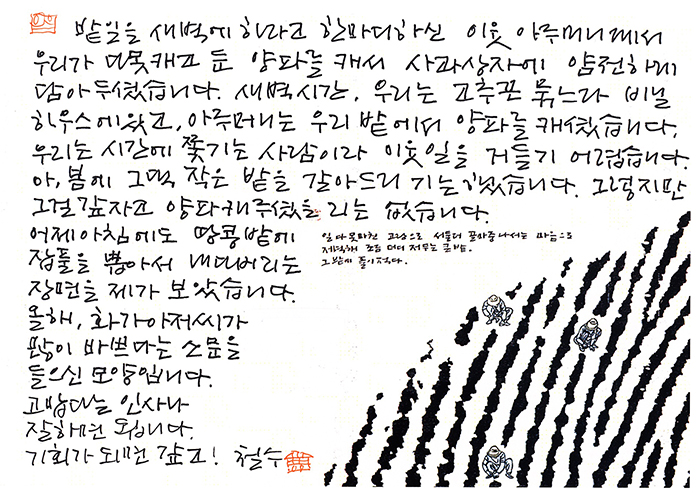 밭일을 새벽에 하라고 한마디하신 이웃 아주머니께서
우리가 다못캐고 둔 양파를 캐서 사과상자에 얌전하게
담아두셨습니다. 새벽시간, 우리는 고추끈 묶느라 비닐
하우스에 있고, 아주머니는 우리 밭에서 양파를 캐셨습니다.
우리는 시간에 쫓기는 사람이라 이웃일을 거들기 어렵습니다.
아, 봄에 그댁 작은 밭을 갈아드리기는 했습니다. 그렇지만
그걸 갚자고 양파캐주셨을 리는 없습니다.
어제아침에도 땅콩밭에
잡풀을 뽑아서 내다버리는
장면을 제가 보았습니다.
올해, 화가아저씨가
많이 바쁘다는 소문을
들으신 모양입니다.
고맙다는 인사나
잘하면 됩니다.
기회가 되면 갚고! 철수
일 다 못마친 고랑으로 서둘러 마음으로
저녁해 조금 더디 저무는 콩밭.
그밭에 풀이 적다.